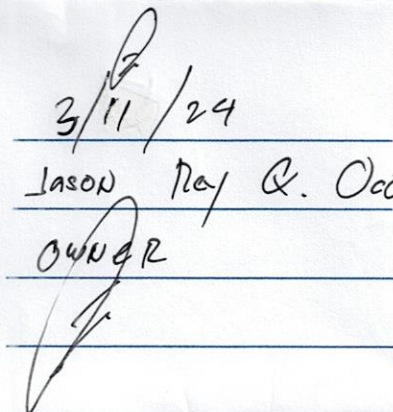 3/11/24
JASON Ray Q.
OWNER